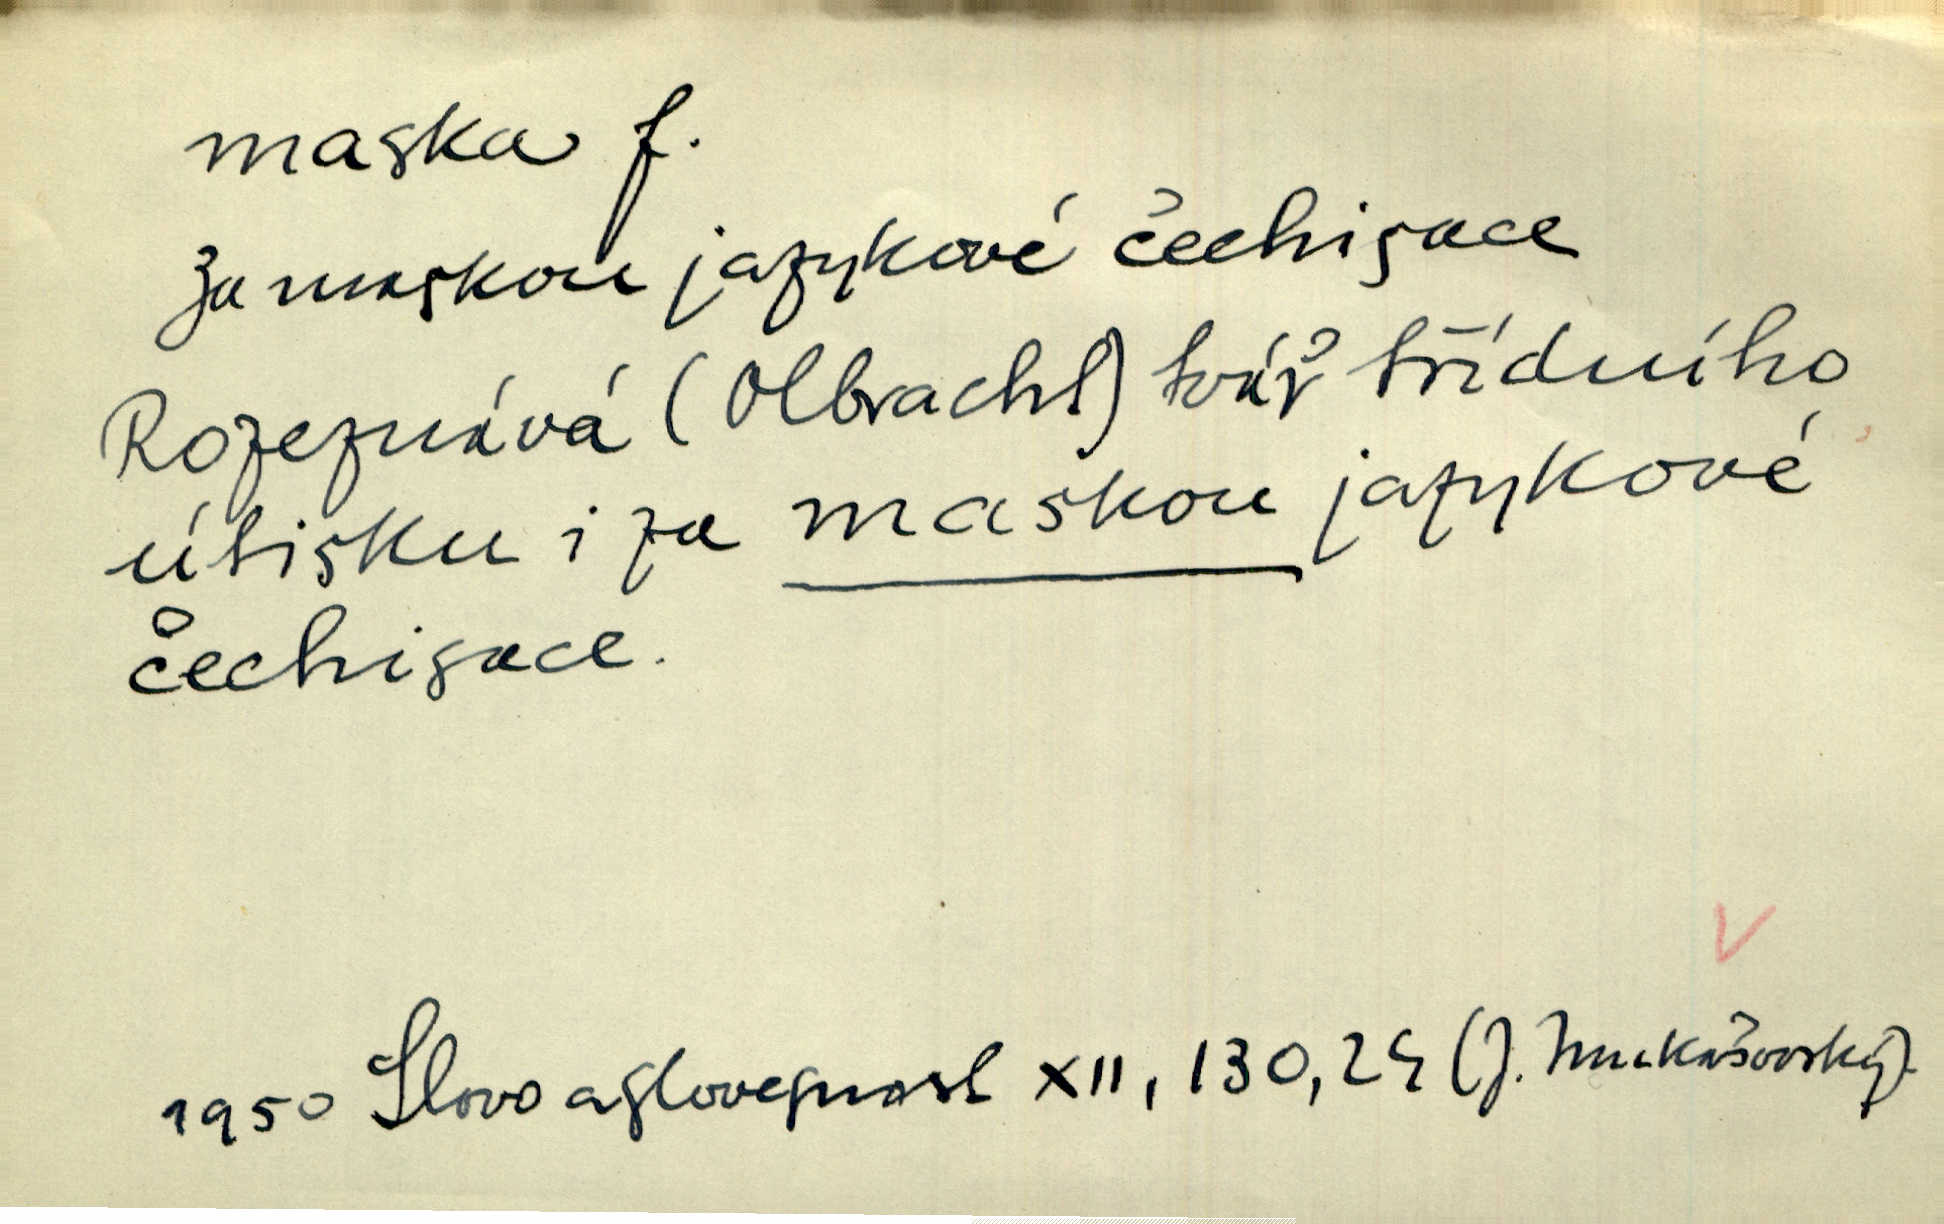 maska f.
za maskou jazykové čechisace
Rozeznává (Olbracht) tvář třídního
útisku i za maskou jazykové
čechisace.
1950 Slovo a slovesnost XII, 130, 24 (J. Mukařovský).